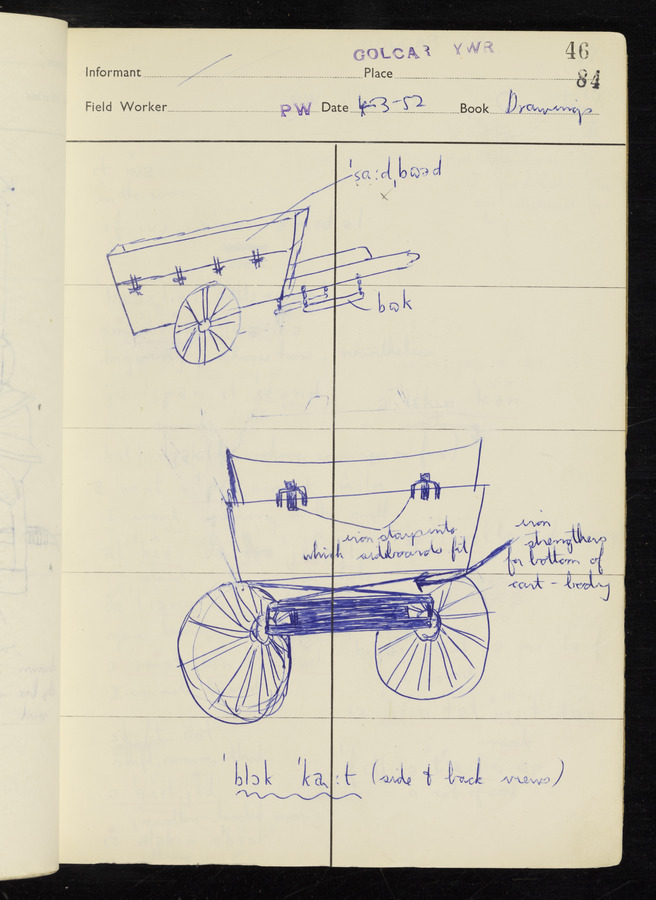 GOLCAR YWR 46
Informant Place 84
Field Worker PW Date 4-3-52 Book Drawings
ˈsaːdˌbɷəd
bɷk
iron
strengthers
for bottom of
cart-body
iron staps into
which sideboards fit
ˈblɔk ˈkaːt (side & back views)